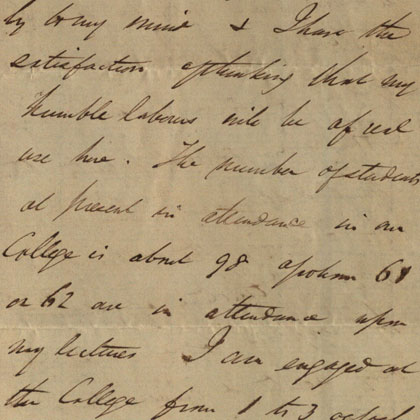 ly to my mind & I have the
satisfaction of thinking that my
humble labours will be of real
use here. The number of students
at present in attendance in our
College is about 98 of whom 60
or 62 are in attendance upon
my lectures I am engaged at
the College from 1 to 3 o'clock